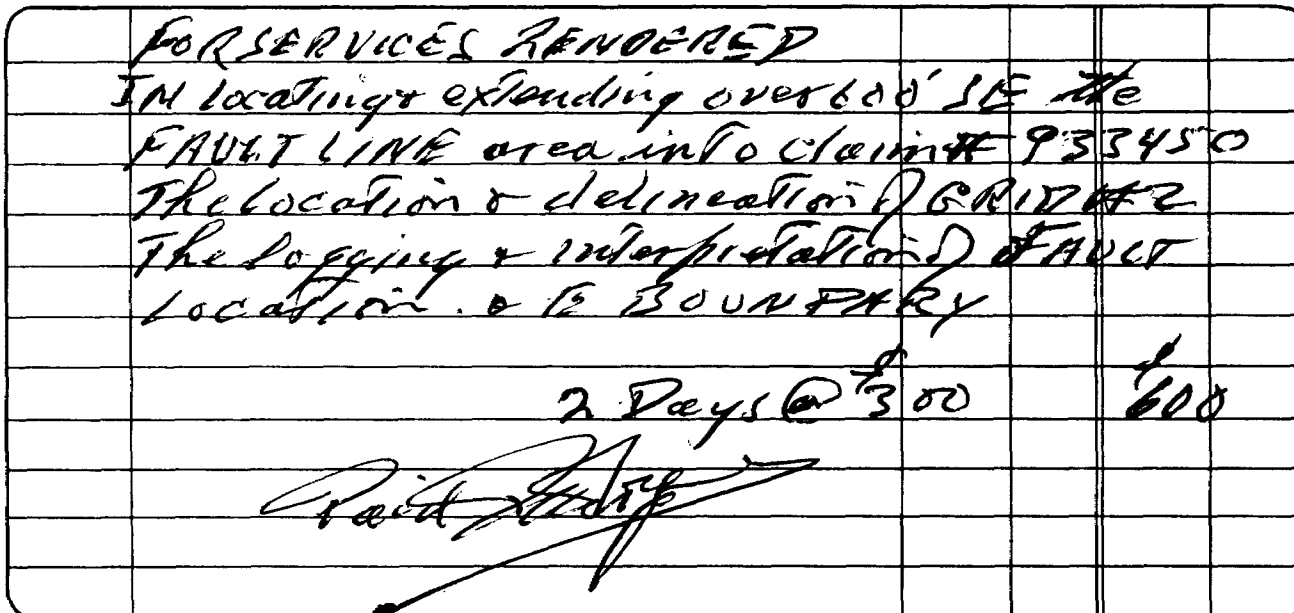 FOR SERVICES RENDERED
IN locating & extending over 600' SE the
FAULT LINE area into claim # 933450
The location & delineation of GRID #2
The logging & interpretation of FAULT
Location. & E BOUNDARY
2 Days @ $300 $600
Paid